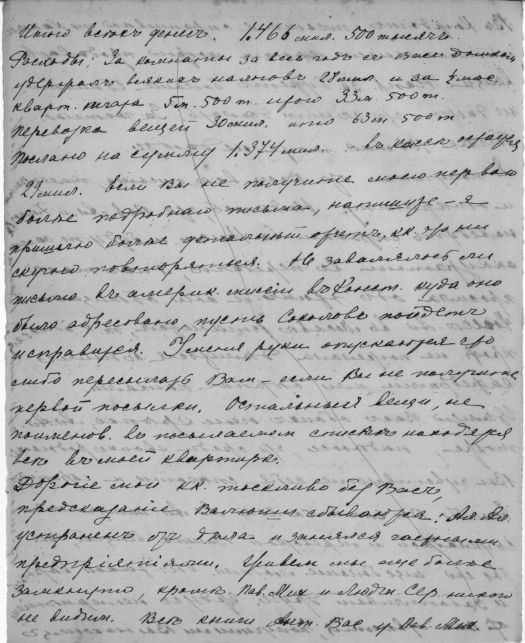 Итого всехъ денегъ. 1.466 мил. 500 тысячъ.
Расходы: За комнаты за весь годъ съ Васъ
удержалъ всякихъ налоговъ 28 мил. и за
кварт. 5 м. 500 т. итого 33 м. 500 т.
Перевозка вещей 30 мил. итого 63 м. 500 т.
Послано на сумму 1.374 мил. въ кассѣ
29 мил. Если Вы не получите моего перваго
болѣе подробнаго письма, напишите – я
пришлю болѣе детальный отчетъ, какъ это ни
скучно повторяться. Не завалялось ли
письмо въ америк. миссіи въ Конст. куда оно
было адресовано, пусть Соколовъ пойдетъ
исправится. У меня руки опускаются что
либо пересылать Вамъ – если Вы не получили
первой посылки. Остальныя вещи, не
поименов. въ посылаемомъ спискѣ находятся
всѣ въ моей квартирѣ.
Дорогіе мои какъ тоскливо безъ Васъ,
предсказаніе Валюши сбываются. Ал. Ал.
устраненъ отъ дѣла и занялся частными
предпріятіями. Живемъ мы еще болѣе
замкнуто, кромѣ Пав. Мих. и Людм. Сер. никого
не видим. Всѣ книги Ант. Вас. у Пав. Мих.